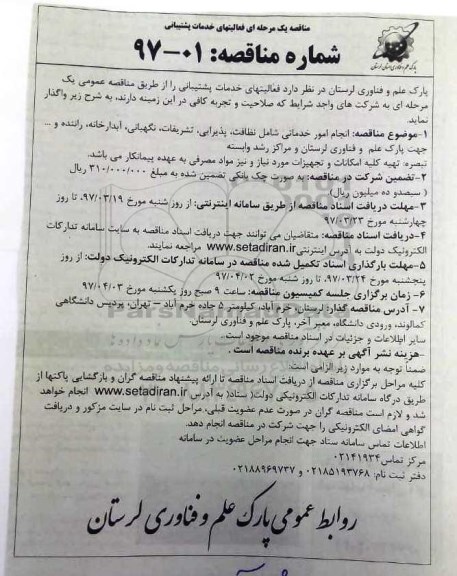 مناقصه یک مرحله ای فعالیتهای خدمات پشتیبانی
شماره مناقصه: ۰۱-۹۷
پارک علم و فناوری استان لرستان
پارک علم و فناوری لرستان در نظر دارد فعالیتهای خدمات پشتیبانی را از طریق مناقصه عمومی یک
مرحله ای به شرکت های واجد شرایط که صلاحیت و تجربه کافی در این زمینه دارند، به شرح زیر واگذار
نماید.
۱-موضوع مناقصه: انجام امور خدماتی شامل نظافت، پذیرایی، تشریفات، نگهبانی، آبدارخانه، راننده و ...
جهت پارک علم و فناوری لرستان و مراکز رشد وابسته
تبصره: تهیه کلیه امکانات و تجهیزات مورد نیاز و نیز مواد مصرفی به عهده پیمانکار می باشد.
۲-تضمین شرکت در مناقصه: به صورت چک بانکی تضمین شده به مبلغ ۳۱۰/۰۰۰/۰۰۰ ریال
( سیصدو ده میلیون ریال)
۳-مهلت دریافت اسناد مناقصه از طریق سامانه اینترنتی: از روز شنبه مورخ ۹۷/۰۳/۱۹، تا روز
چهارشنبه مورخ ۹۷/۰۳/۲۳
۴-دریافت اسناد مناقصه: متقاضیان می توانند جهت دریافت اسناد مناقصه به سایت سامانه تدارکات
الکترونیک دولت به آدرس اینترنتی www.setadiran.ir مراجعه نمایند.
۵-مهلت بارگذاری اسناد تکمیل شده مناقصه در سامانه تدارکات الکترونیک دولت: از روز
پنجشنبه مورخ ۹۷/۰۳/۲۴، تا روز شنبه مورخ ۹۷/۰۴/۰۲
۶- زمان برگزاری جلسه کمیسیون مناقصه: ساعت ۹ صبح روز یکشنبه مورخ ۹۷/۰۴/۰۳
۷- آدرس مناقصه گذار: لرستان، خرم آباد، کیلومتر ۵ جاده خرم آباد – تهران، پردیس دانشگاهی
کمالوند، ورودی دانشگاه، معبر آخر، پارک علم و فناوری لرستان.
سایر اطلاعات و جزئیات در اسناد مناقصه موجود است.
-هزینه نشر آگهی بر عهده برنده مناقصه است .
ضمناً توجه به موارد زیر الزامی است:
کلیه مراحل برگزاری مناقصه از دریافت اسناد مناقصه تا ارائه پیشنهاد مناقصه گران و بازگشایی پاکتها از
طریق درگاه سامانه تدارکات الکترونیکی دولت( ستاد) به آدرس www.setadiran.ir انجام خواهد
شد و لازم است مناقصه گران در صورت عدم عضویت قبلی، مراحل ثبت نام در سایت مزکور و دریافت
گواهی امضای الکترونیکی را جهت شرکت در مناقصه انجام دهد.
اطلاعات تماس سامانه ستاد جهت انجام مراحل عضویت در سامانه
مرکز تماس ۰۲۱۴۱۹۳۴
دفتر ثبت نام: ۰۲۱۸۵۱۹۳۷۶۸ و ۰۲۱۸۸۹۶۹۷۳۷
روابط عمومی پارک علم و فناوری لرستان